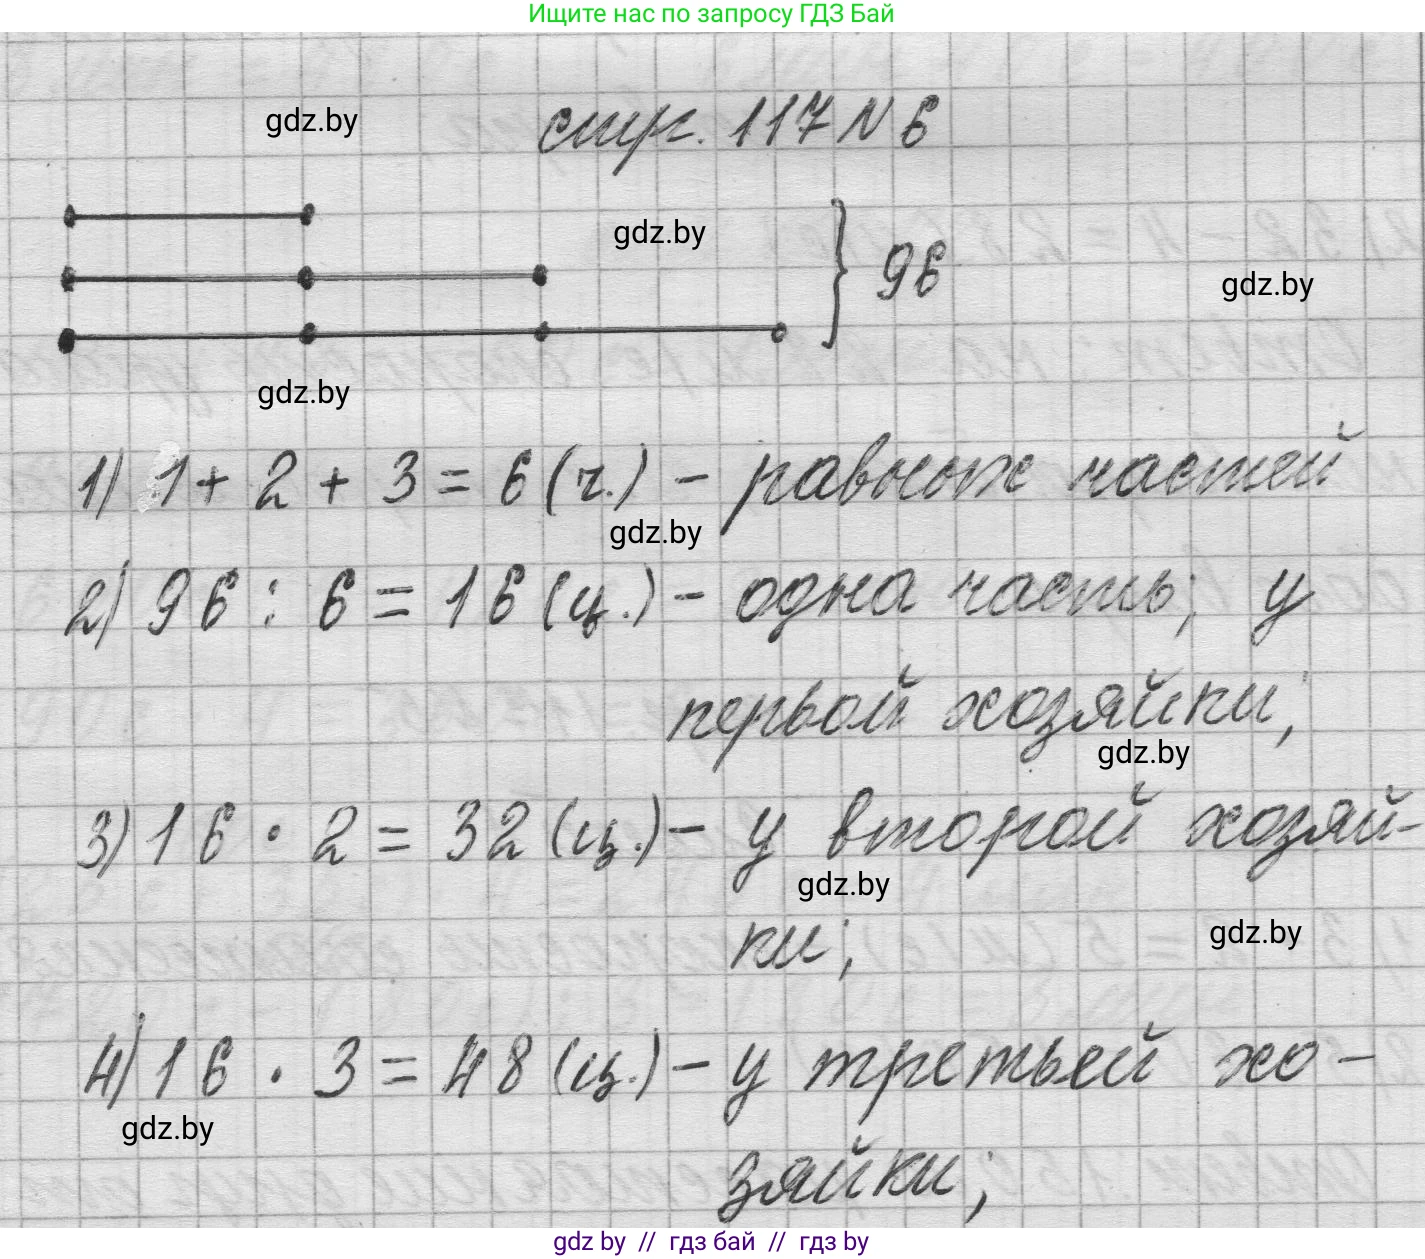 Ищите нас по запросу ГДЗ Бай
gdz.by
стр. 117 № 6
gdz.by
} 96
gdz.by
gdz.by
1) 1 + 2 + 3 = 6 (ч.) - равных частей
gdz.by
2) 96 : 6 = 16 (ц.) - одна часть; у
первой хозяйки;
gdz.by
3) 16 · 2 = 32 (ц.) - у второй хозяй-
gdz.by
ки;
gdz.by
4) 16 · 3 = 48 (ц.) - у третьей хо-
gdz.by
зяйки;
gdz by // гдз бай // гдз by